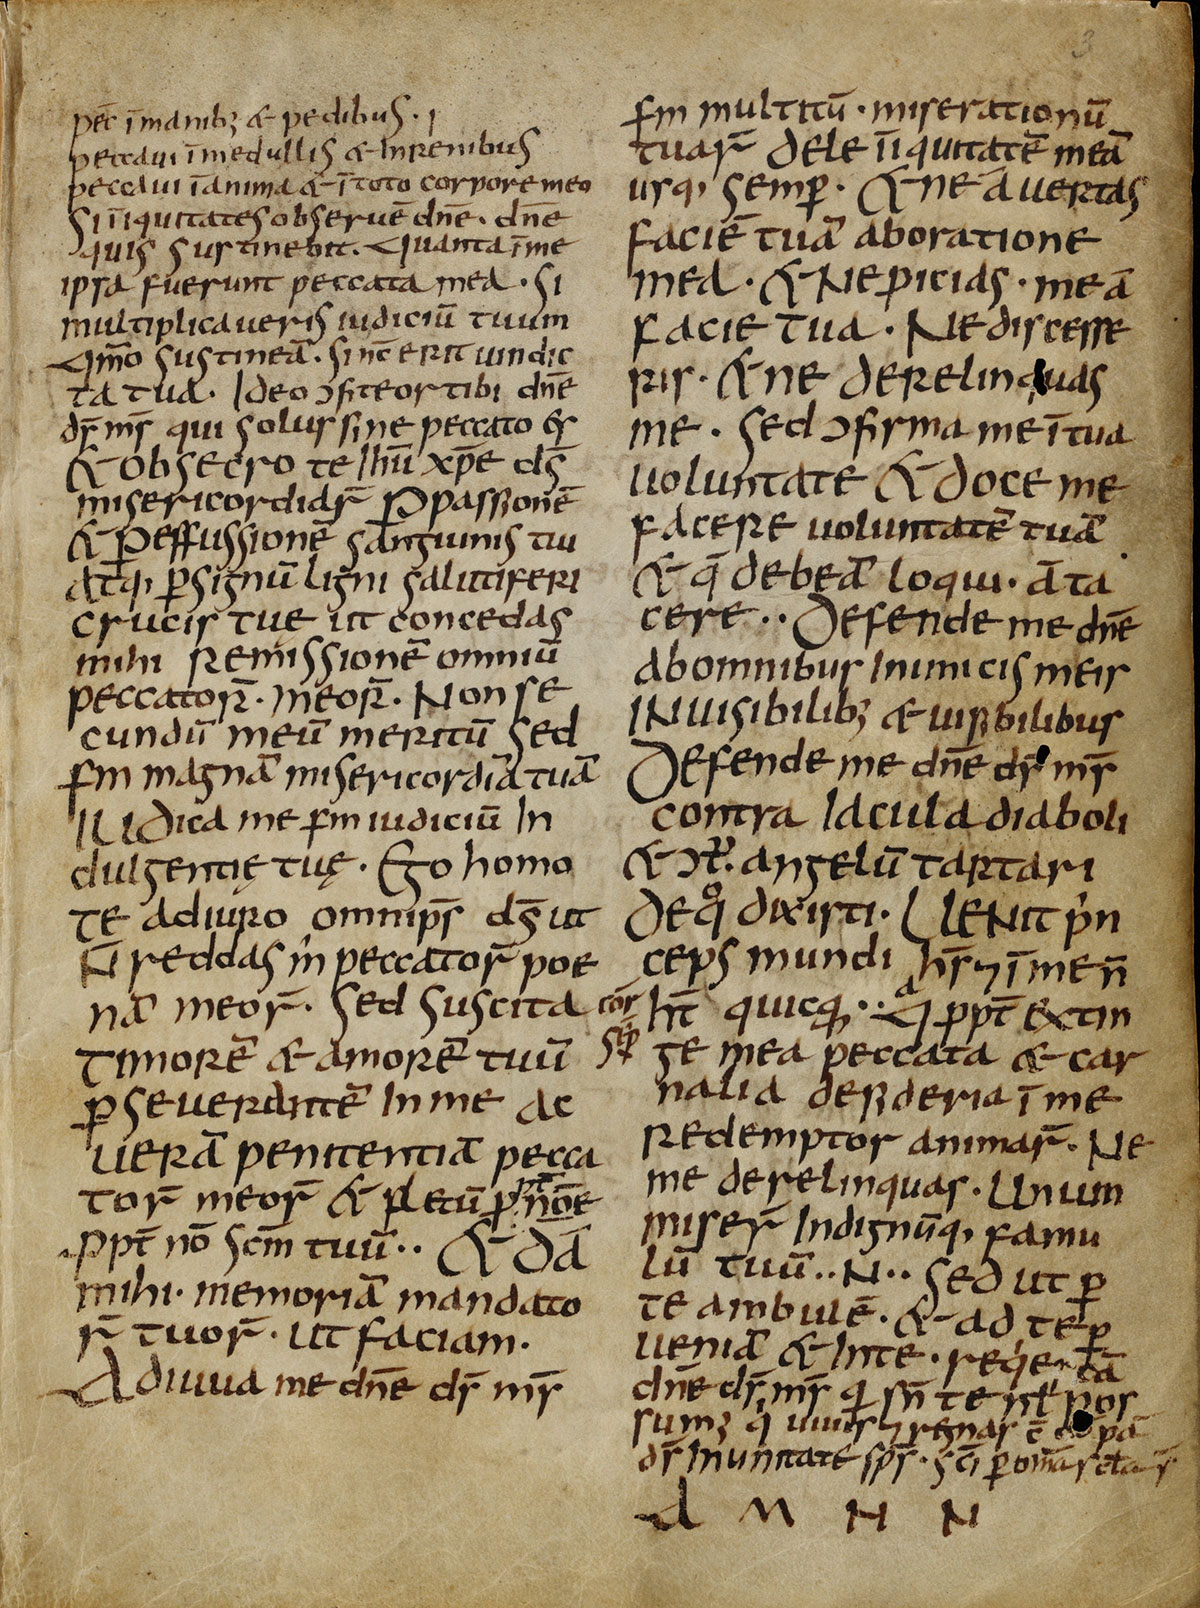 3
pec̄ īmanibꝫ & pedibus. ı
peccaui īmedullis & Inrenibus
peccaui īanima & ītoto corporemeo
Si īiquitates obseruē dn̄e. dn̄e
quis sustinebit. Quanta īme
ipsa fuerunt peccata mea. Si
multiplicaueris iudiciū tuum
qm̄o sustineā. sinc̄ erit uindic
ta tua. Ideo ↄfiteor tibi dn̄e
ds̄ ms̄ qui solus sine peccato es
& obsecro te Ihū xp̄e ds̄
misericordiar̄ ꝑ passionē
& ꝑ effussionē sanguinis tui
atq, ꝑ signū ligni salutiferi
crucis tue ut concedas
mihi remissionē omniū
peccator̄. meor̄. Non se
cundū meū meritū sed
sm̄ magnā misericordiā tuā
IUDica me sm̄ iudiciū In
dulgentię tuę. Ego homo
te adiuro omnip̄s ds̄ ut
N̄ reddas m̍ peccator̄ poe
nā meor̄. sed suscita cor̄
timorē & amorē tuū sēp
ꝑseuerantē Inme ac
uerā penitentiā pecca
tor̄ meor̄ & fletū ꝑpt̄ nōe
ꝓpt̄ nō sc̄m tuū.. & dā
mihi. memoriā mandato
r̄ tuor̄. ut faciam.
Adiuua me dn̄e ds̄ ms̄
sm̄ multitū. miserationū
tuar̄ dele īiquitatē meā
usq, semꝑ. & ne auertas
faciē tuā aboratione
mea. & Nepicias. me ā
facie tua. Ne discesse
ris. & ne derelinquas
me. sed ↄfirma me ītua
uoluntate & doce me
facere uoluntatē tuā
& q̄ debeā loqui. ā ta
cere.. Defende me dn̄e
abomnibus Inimicis meis
INuisibilibꝫ & uisibilibus
Defende me dn̄e ds̄ ms̄
contra Iacula diaboli
& ↄtr̄. angelū tartari
De qͦ dixisti. UENit pͥn
ceps mundi hs̄ ⁊ īme n̄
ht̄ quicq̄.. Qᵃ ꝓpt̄ extin
ge mea peccata & car
nalia desideria īme
redemptor animar̄. Ne
me derelinquas. Unum
miser̄ Indignūq, famu
lū tuū..N.. sed ut ꝑ
te ambulē. & ad te ꝑ
ueniā & Inte. requiescā
dn̄e ds̄ ms̄ qͥ sn̄ te nl̄ pos
sumꝫ qͥ uiuis ⁊ regnas c̄ dō pā
ds̄ Inunitate sp̄s. sc̄i ꝑ om̄a scl̄a s̄
A M H N